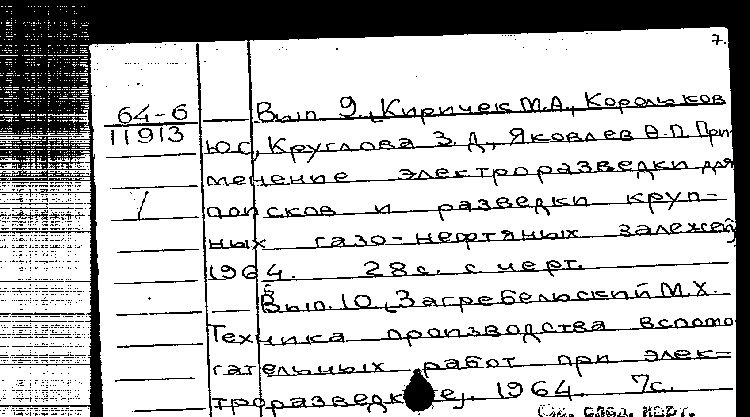 7.
64-6
11913
Вып. 9. [Киричек М.А., Корольков
Ю.С., Круглова З.Д., Яковлев Ф.П. При-
менение электроразведки для
поисков и разведки круп=
ных газо-нефтяных залежей
1964. 28 с. с черт.
Вып. 10. [Загребельский М.Х.
Техника производства вспомо
гательных работ при элек=
троразведке]. 1964. 7с.
См. след. карт.